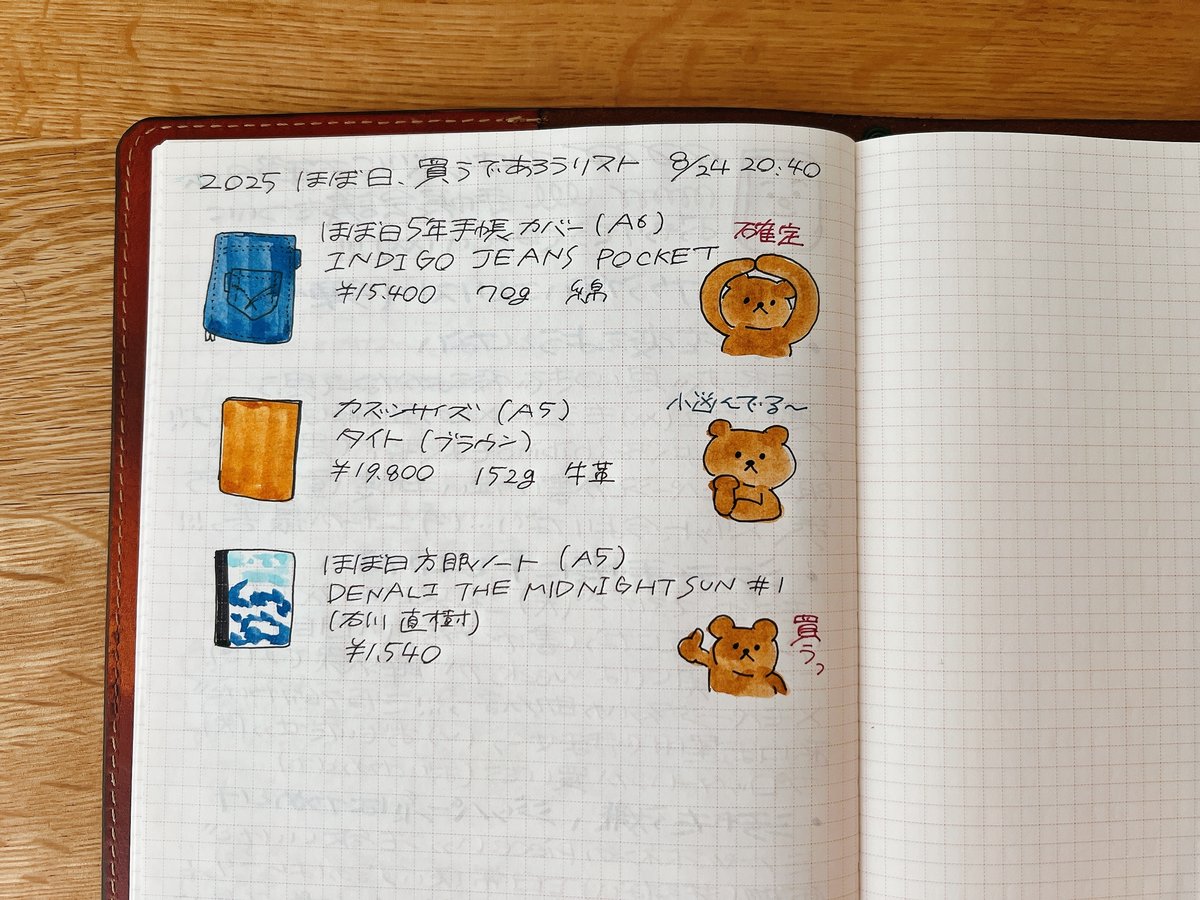 2025 ほぼ日、買うであろうリスト 8/24 20:40
ほぼ日5年手帳カバー(A6)
INDIGO JEANS POCKET
¥15.400 70g 綿
確定
カズンサイズ(A5)
タイト(ブラウン)
¥19.800 152g 牛革
小凶んでる〜
ほぼ日方眼ノート(A5)
DENALI THE MIDNIGHT SUN #1
(石川直樹)
¥1.540
買うっ